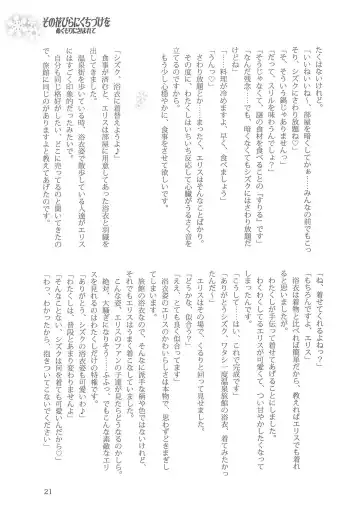 その花びらにくちづけを
ぬくもりに包まれて
たくはないけれど。
「いいわね、部屋を暗くしてかぁ……みんなの前でもこっそりシズクにさわり放題ね♡」
「そ、そういう鍋じゃありませんっ」
「だって、スリルを味わうんでしょ？」
「そうじゃなくて、謎の食材を食べることの『すりる』です」
「なんだ残念……でも、暗くなくてもシズクにさわり放題だけどね」
「……料理が冷めますよ、早く、食べましょう」
「うん♡」
さわり放題とか……まったく、エリスはそんなことばかり。
その度に、わたくしはいちいち反応して心臓がうるさく音を立てるのですから。
もう少し心穏やかに、食事をさせて欲しいです。
「シズク、浴衣に着替えようよ♪」
食事が済むと、エリスは部屋に用意してあった浴衣と羽織を出してきました。
温泉街を歩いている時、浴衣姿で散歩している人達がエリスにはすごく印象的だったみたいで。
自分も同じ格好がしたい、どこに売ってるのと聞いてきたので、旅館に同じのがありますよと教えてあげたのです。
「ね、着せてくれるよねっ？」
「もちろんですよ、エリス」
浴衣は着物と比べれば簡単だから、教えればエリスでも着れると思いましたが。
わたくしが手伝って着せてあげることにしました。
わくわくしてるエリスが可愛くて、つい甘やかしたくなってしまったんです。
「こうして……はい、これで完成です」
「ありがとうシズク、ワタシ一度温泉旅館の浴衣、着てみたかったんだ♡」
エリスはその場で、くるりと回って見せました。
「どうかな、似合う？」
「ええ、とても良く似合ってます」
浴衣姿のエリスのかわいらしさは本物で　思わずときまぎしてしまいます。
旅館の浴衣なので、そんなに派手な柄や色ではないけれど。
それでもエリスはうまく着こなしていました。
こんな姿、エリスのファンの子達が見たらどうなるのかしら。
絶対、大騒ぎになりそう……ふふっ、でもこんな素敵なエリスを見れるのはわたくしだけの特権です。
「ありがとう、シズクの浴衣姿も可愛いわね♪」
「わたくしは、普段とあまり変わりませんよ」
「そんなことない、シズクは何を着ても可愛いんだから♡」
「わっ、わかったから、抱きついてこないでください」
21